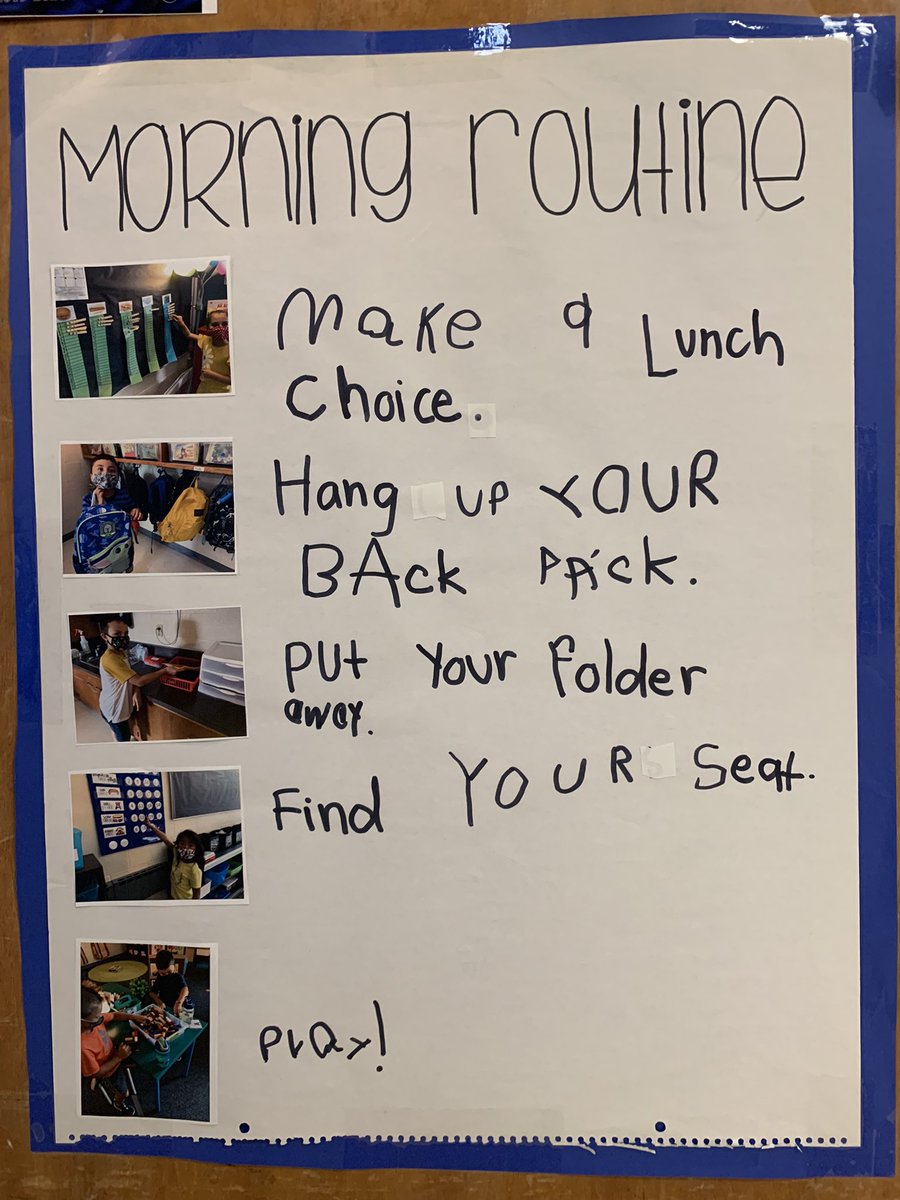 MORNinG rOUtinE
Make a Lunch
Choice.
Hang up YOUR
BAck PAck.
PUt Your Folder
away.
Find YOUR Seat.
PLAY!